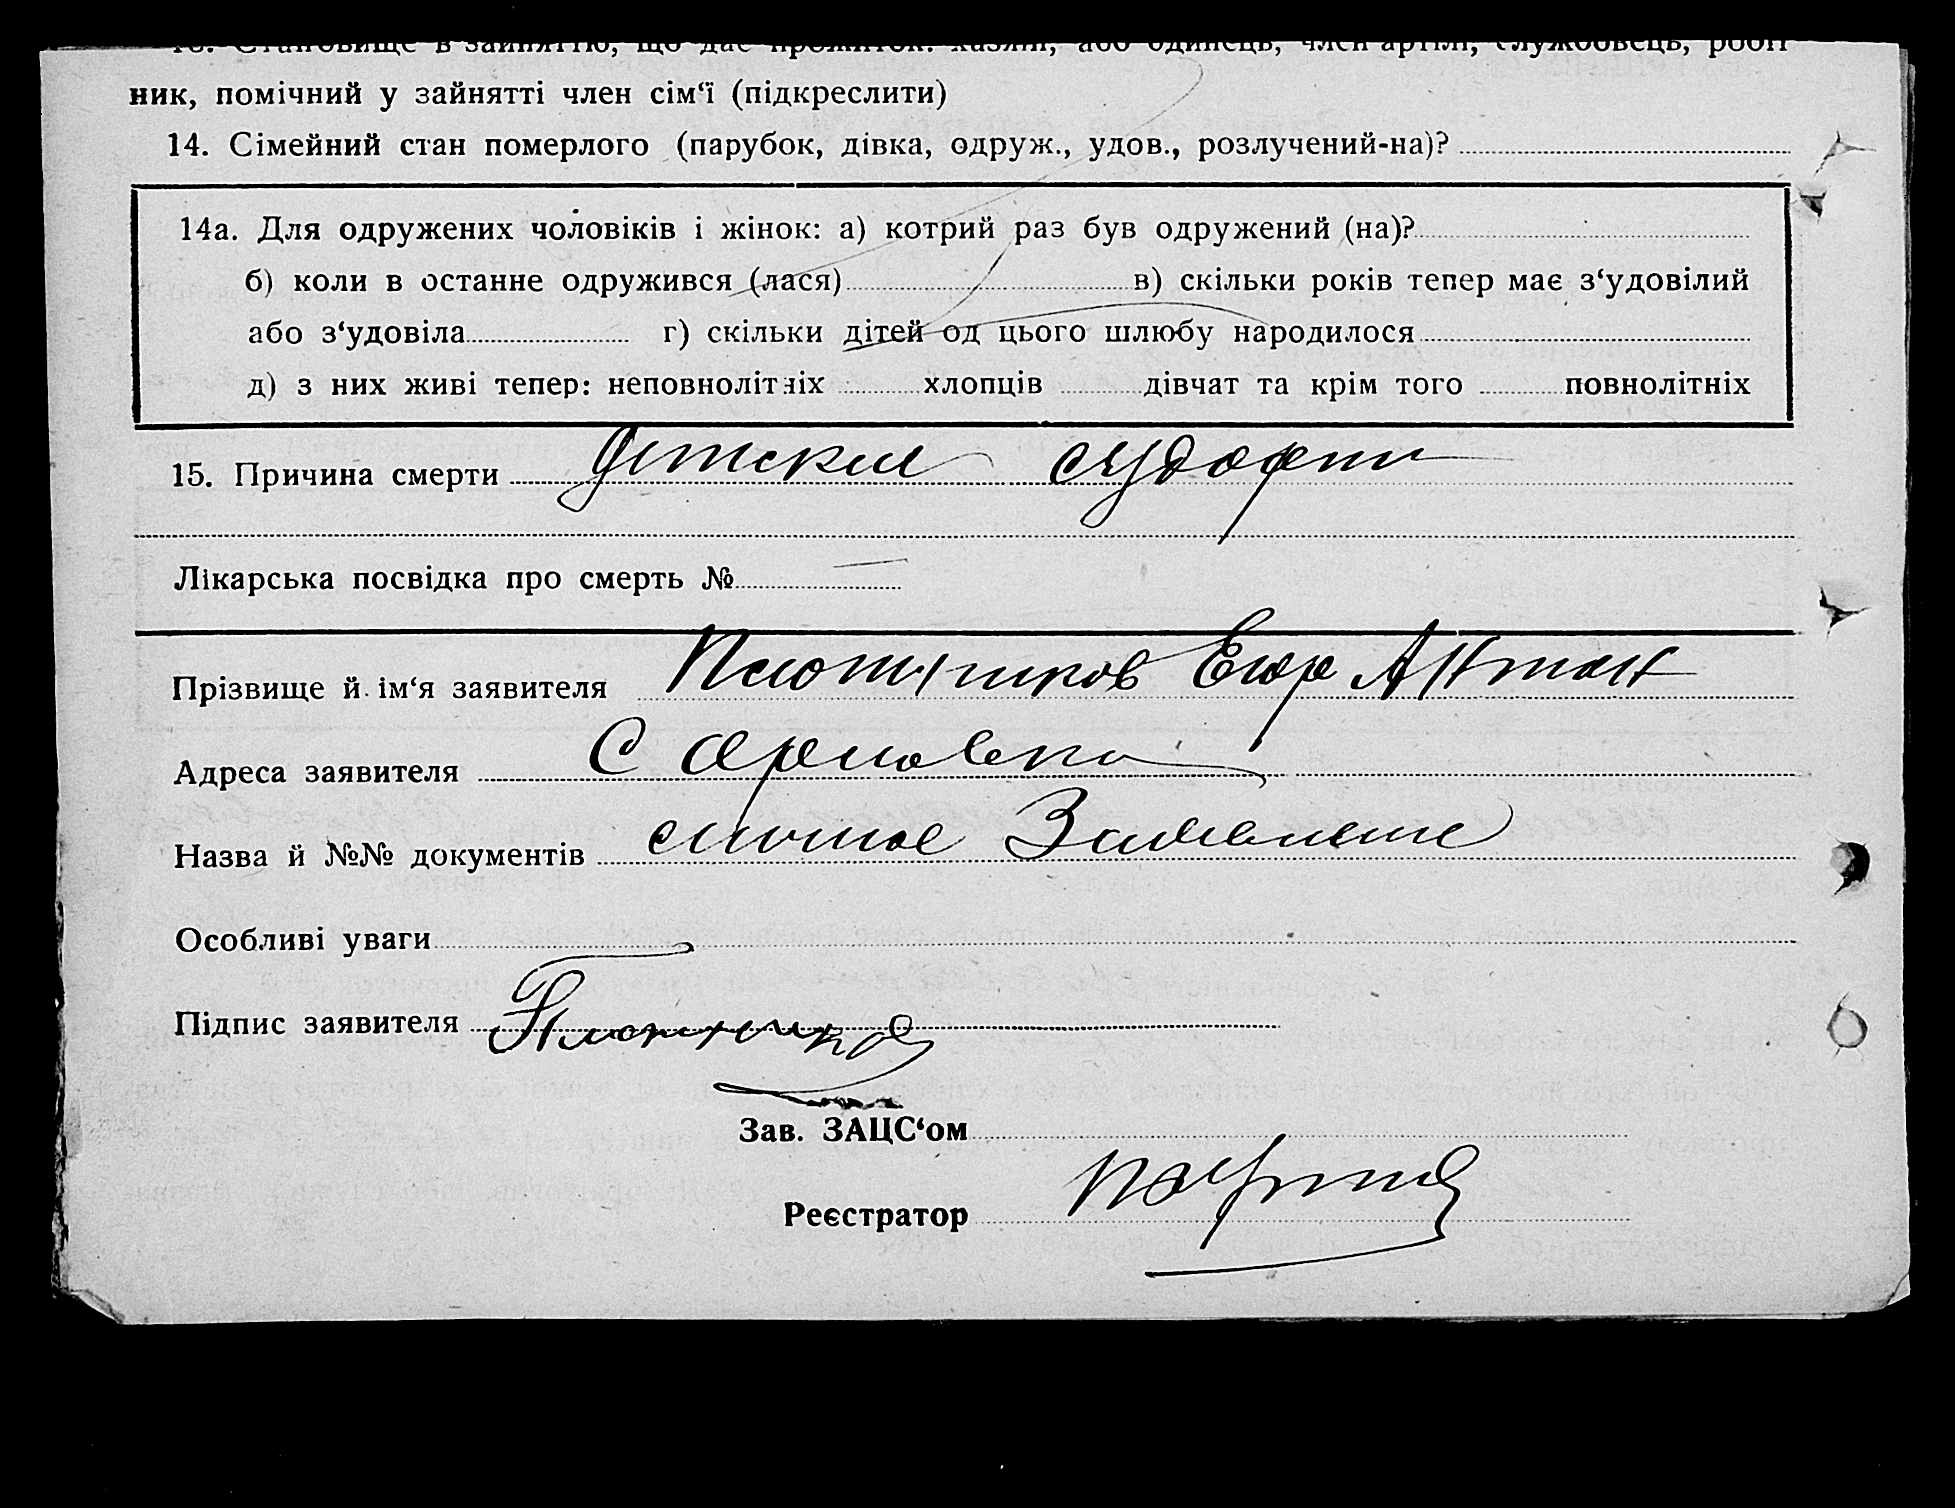 13. Становище в зайняттю, що дає прожиток: хазяїн, або одинець, член артілі, службовець, робіт
ник, помічний у зайнятті член сім‘ї (підкреслити)
14. Сімейний стан померлого (парубок, дівка, одруж., удов., розлучений-на)?
14а. Для одружених чоловіків і жінок: а) котрий раз був одружений (на)?
б) коли в останне одружився (лася) в) скільки років тепер має з‘удовілий
або з‘удовіла г) скільки дітей од цього шлюбу народилося
д) з них живі тепер: неповнолітніх хлопців дівчат та крім того повнолітніх
15. Причина смерти Детские судорги
Лікарська посвідка про смерть №
Прізвище й ім‘я заявителя Плотников Егор Антон
Адреса заявителя С
Назва й №№ документів личное Заявление
Особливі уваги
Підпис заявителя Плотников
Зав. ЗАЦС‘ом
Реєстратор